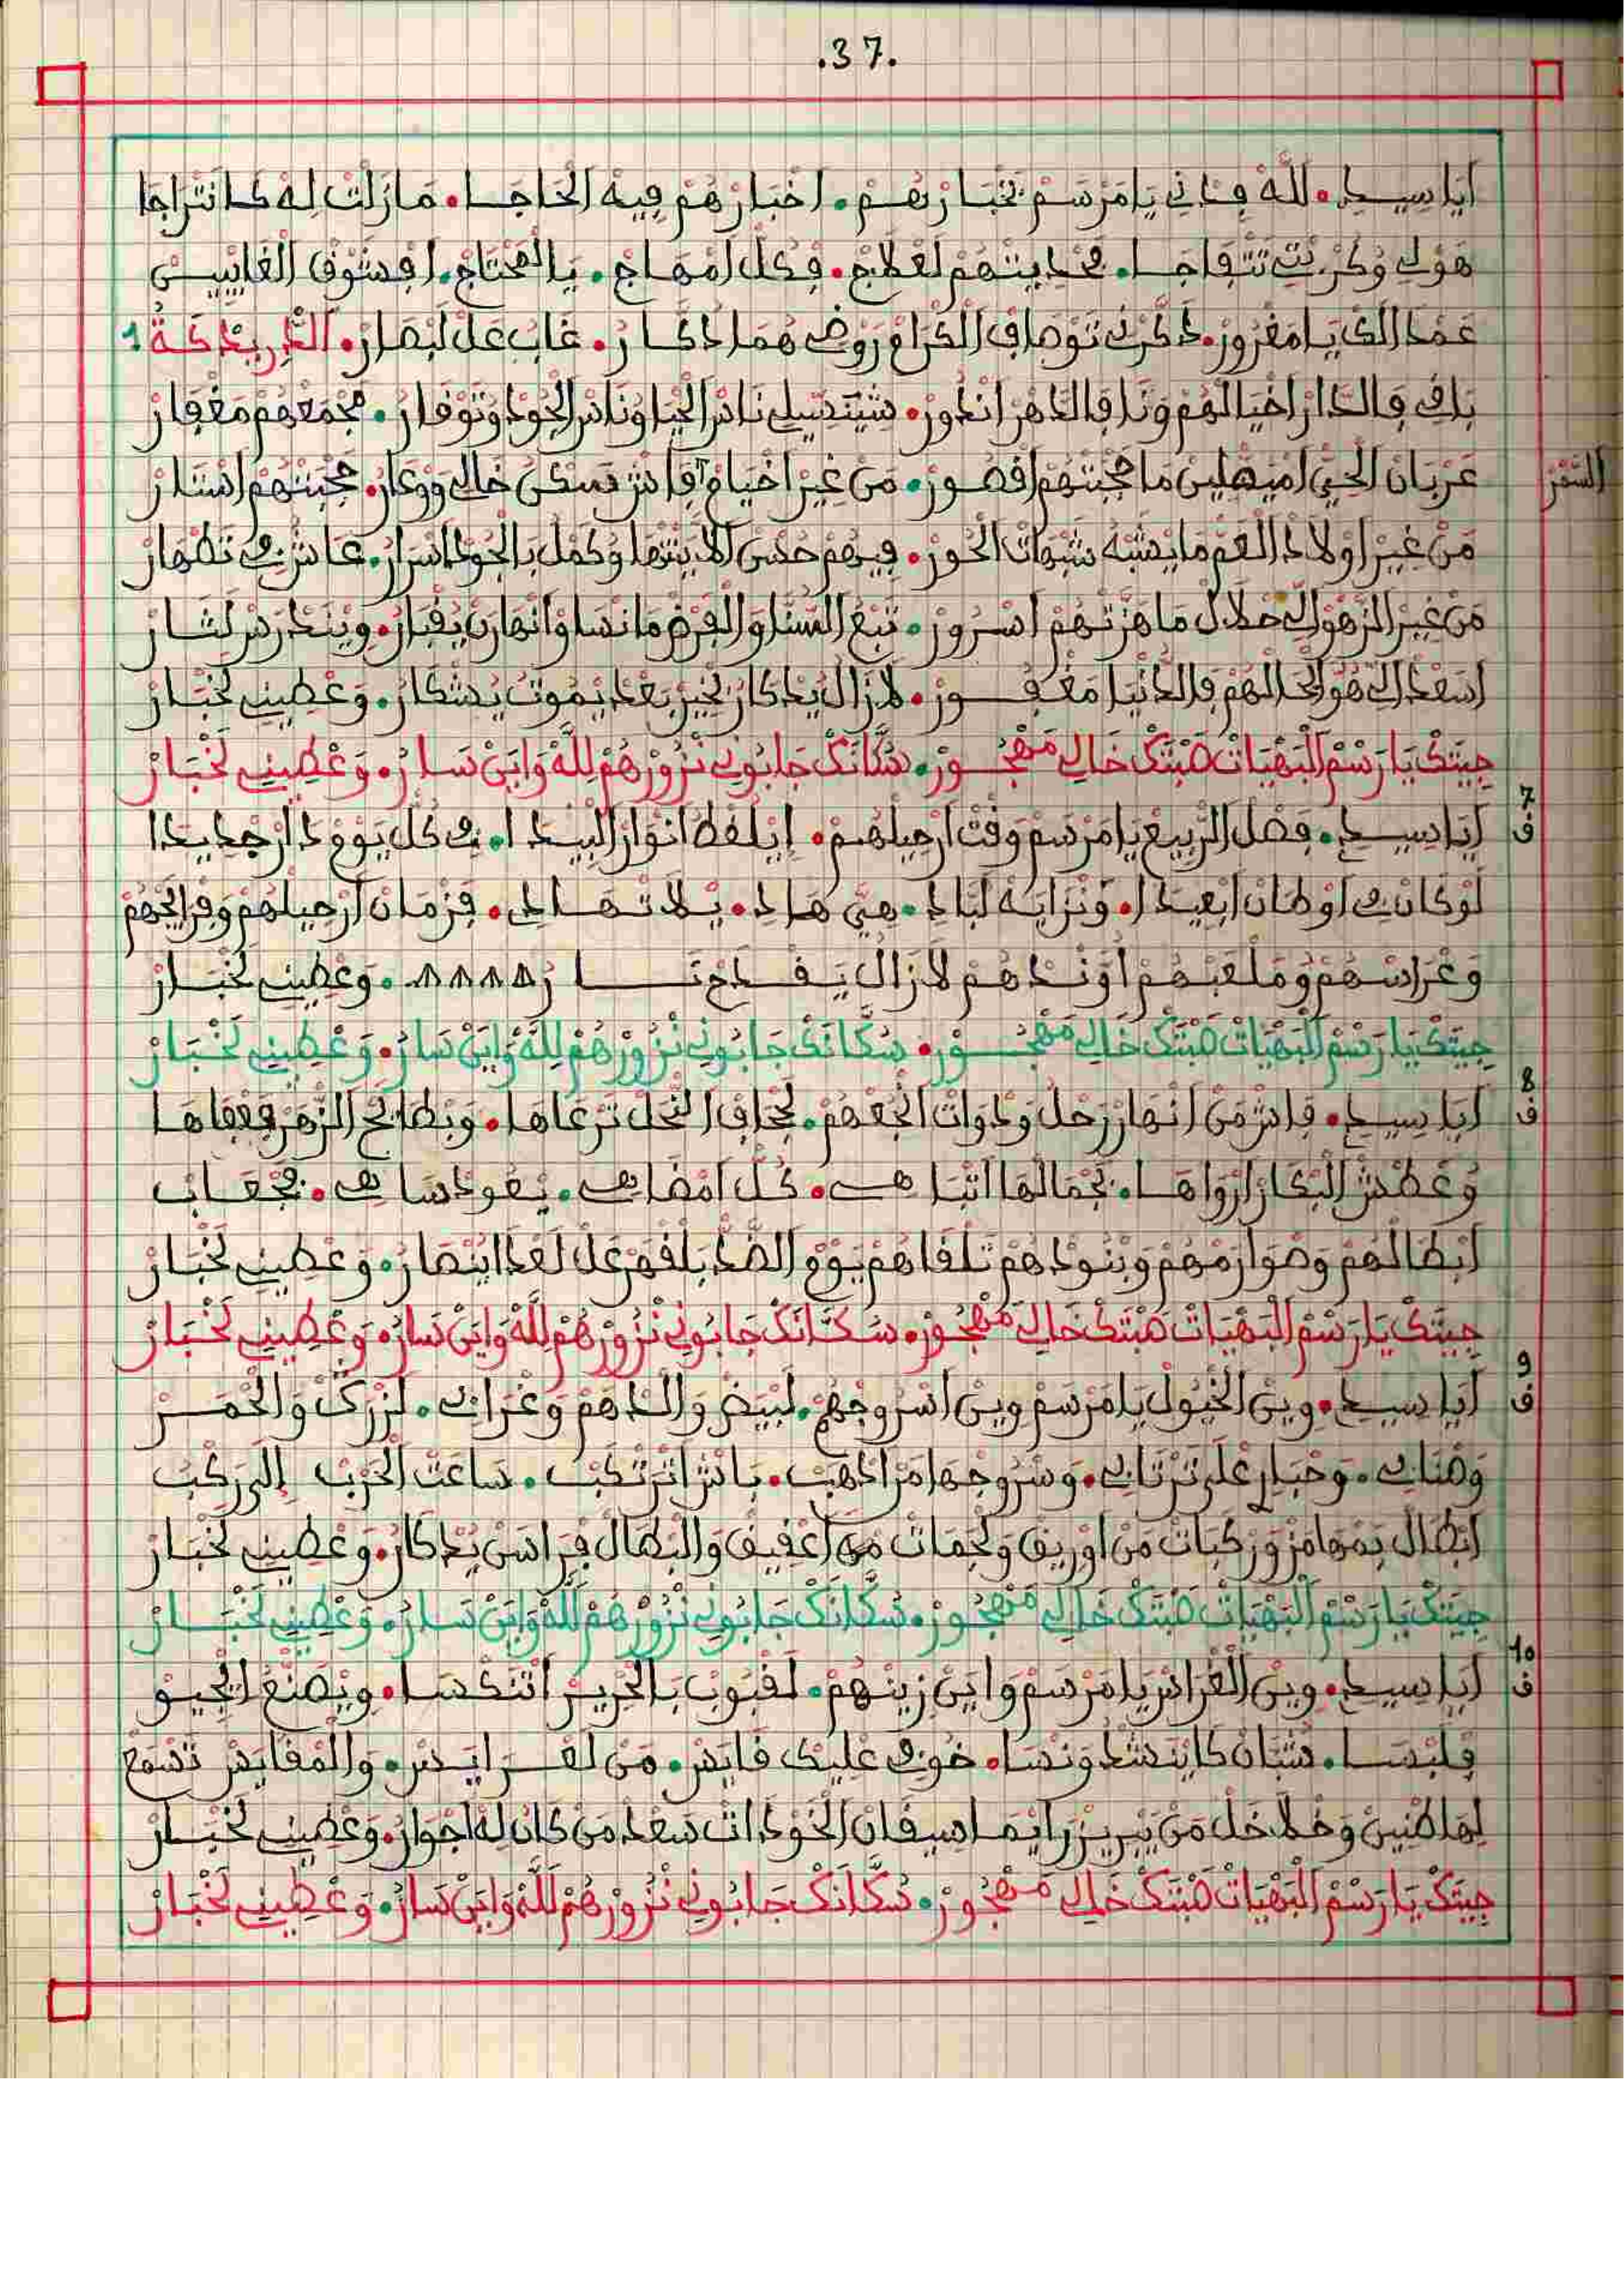 .37.
أيا سيدي. لله فاني يا مرسم تخبارهم. اخبارهم فيه الحاجا. مازلت له كانتراجا
هولي وكربتي تتفاجا. محديتهم لعلاج. فكل امهاج. يا المحتاج. افشوق الغاييس
عمدا لك يا مغرور. ذكرني توصاف الكرام روضي هما اذكار. غاب عل لبصار. الدريدكة 1
باقي فالدار اخيالهم ونا فالداهر انطور. شيتديلي ناس الحيا وناس الجود وتوقار. مجمعهم مغفار
عربان الحي اميهلين ما حجبتهم اقصور. من غير اخيام آفاش تسكن خالي ووعار. حجبتهم استار
السفر
من غير اولاد العم ما يشبه شبهات الحور. فيهم حسن لا ينتها وكمل بالجود اسرار. عاشرفي تطهار
من غير الزهو الي حلال ما هزتهم اسرور. تبع السنا والفرض ما نسا وانهارن يقبار. ويندرس لثار
اسعد الي هو الحالهم فالدنيا مغفور. لازال يدكار بخير بعد يموت يشكار. وعطيني لخبار
جيتك يا رسم البهيات صبتك خالي مهجور. سكانك جاوبوني نزورهم لله واين سار. وعطيني لخبار
7
ف أيا سيدي. فصل الربيع يا مرسم وقت ارحيلهم. إيلفظ انوار البيدا. في كل يوم دار جديدا
لو كان في اوطان ابعيدا. ونزايه لباد. هي هاد. يلا تهادي. فزمان ارحيلهم وفرايحهم
وعراسهم وملعبهم اوندهم لازال يقدح نار. وعطيني لخبار
جيتك يا رسم البهيات صبتك خالي مهجور. سكانك جاوبوني نزورهم لله واين سار. وعطيني لخبار
8
ف أيا سيدي. فاش من انهار زحل ودوات انجعهم. لجحاف النحل ترعاها. وبطايح الزهر قفاها
وعطش البكار ارواها. بجمالها اتباهى. كل امضاهي. يعود ساهي. مجعاب
ابطالهم وصوارمهم وبنودهم تلقاهم يوم الضد بلقهر عل لعدا اينصار. وعطيني لخبار
جيتك يا رسم البهيات صبتك خالي مهجور. سكانك جاوبوني نزورهم لله واين سار. وعطيني لخبار
9
ف أيا سيدي. وين الخيول يا مرسم وين اسروجهم. لبيض والدهم وغرابي. لزرك والحمر
وهنابي. وحبار على ترتابي. وسروجها من ادهب. باش اترتكب. ساعت الحرب إلى ركب
ابطال بمهامز وركبات من اوريق ولجمات من اعقيق والبطال فراسن يدكار. وعطيني لخبار
جيتك يا رسم البهيات صبتك خالي مهجور. سكانك جاوبوني نزورهم لله واين سار. وعطيني لخبار
10
ف أيا سيدي. وين العرايس يا مرسم واين زينهم. لقبوب بالحرير اتنكسا. ويصنع الجيو
فلبسا. شبان كاينشد ونسا. خوفي عليك قايس. من لعرايس. والمقايس تسمع
لهاطنين وخلاخل من يبريز رايما سيقان الخودات سعد من كان له اجوار. وعطيني لخبار
جيتك يا رسم البهيات صبتك خالي مهجور. سكانك جاوبوني نزورهم لله واين سار. وعطيني لخبار